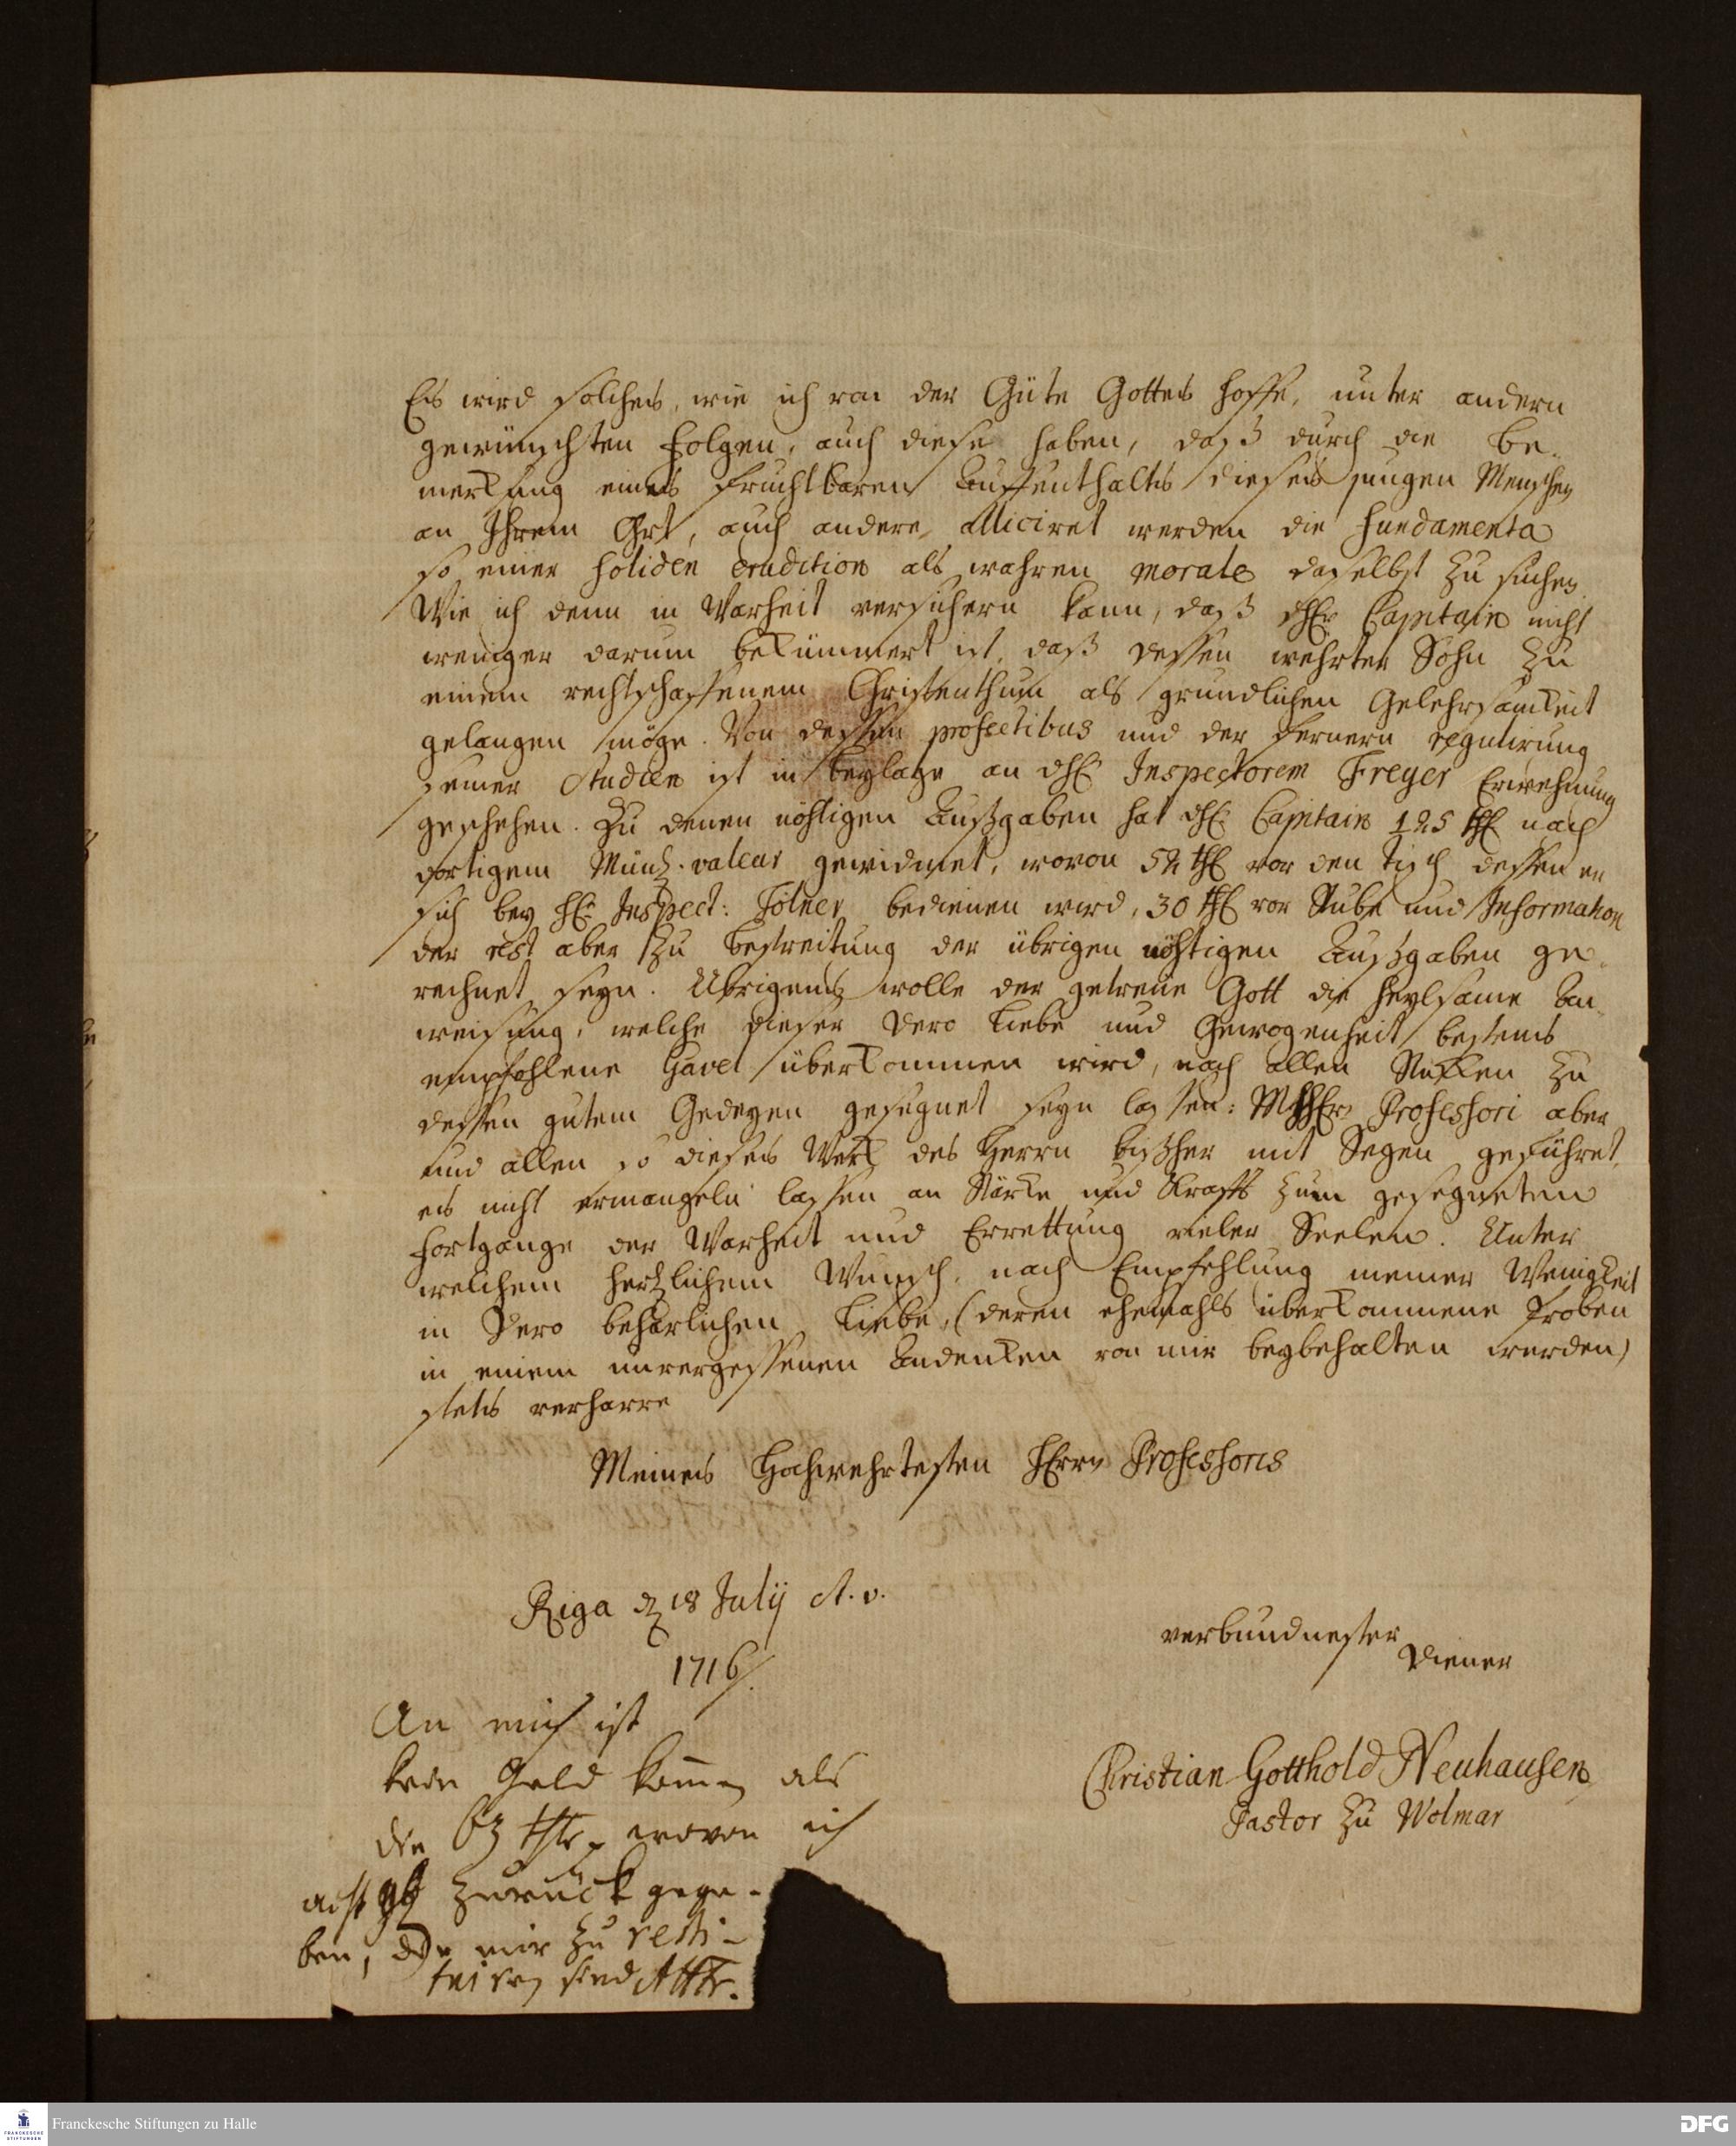 Es wird solches, wie ich von der Güte Gottes hoffe, unter andern
gewünschten Folgen, auch diese haben, daß durch die Be-
merkung eines fruchtbaren Auffenthalts dieses jungen Menschen
an Ihrem Ort, auch andere alliciret werden die Fundamenta
so einer soliden erudition als wahren morale daselbst zu suchen.
Wie ich denn in Warheit versichern kann, daß dHEr Capitain nicht
weniger darum bekümmert ist, daß dessen wehrter Sohn zu
einem rechtschaffenem Christenthum als gründlichen Gelehrsamkeit
gelangen möge. Von dessen profectibus und der fernern regulirung
seiner Studien ist in beylage an dHE Inspectorem Freyer Erwehnung
geschehen. Zu denen nöhtigen Außgaben hat dHE Capitain 125 thl nach
dortigem Müntz-valeur gewidmet, wovon 52 thl vor den Tisch dessen er
sich bey HE Inspect: Tölner bedienen wird, 30 thl vor Stube und Information
der rest aber zu bestreitung der übrigen nöhtigen Außgaben ge-
rechnet seyn. Übrigens wolle der getreue Gott die heylsame An-
weisung, welche dieser Dero Liebe und Gewogenheit bestens
empfohlene Gavel überkommen wird, nach allen Stükken zu
dessen gutem Gedeyen gesegnet seyn lassen: MHHErn Professori aber
und allen so dieses Werk des Herrn bißher mit Segen geführet,
es nicht ermangeln lassen an Stärke und Krafft zum gesegneten
Fortgange der Warheit und Errettung vieler Seelen. Unter
welchem hertzlichem Wunsch, nach Empfehlung meiner Wenigkeit
in Dero beharlichen Liebe, (deren ehemahls überkommene Proben
in einem unvergessenen Andenken von mir beybehalten werden)
stets verharre
Meines Hochwehrtesten HErrn Professoris
Riga d 18 Julij st. v.
1716.
verbundnester
Diener
Christian Gotthold Neuhausen
Pastor zu Wolmar
An mich ist
kein Geld kommen als
die 63 thlr, wovon ich
acht gl zurück gege-
ben, die mir zu resti-
tuiren sind